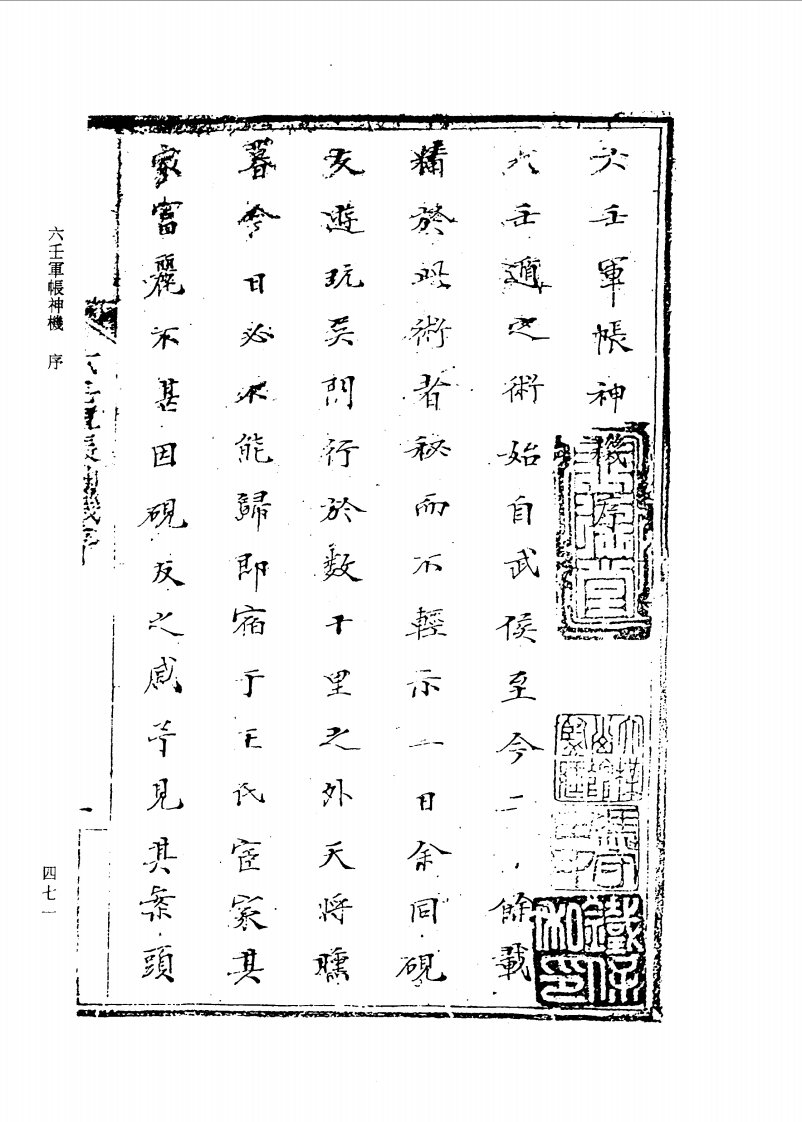 六壬軍帳神機序
六壬遁之術始自武侯至今二千餘載
精於此術者秘而不輕示一日余同硯
友遊玩吴門行於数十里之外天将曛
暮今日必不能歸即宿于王氏宦家其
家富麗不甚因硯友之戚予見其案頭
六壬軍帳神機序
一
六壬軍帳神機 序
四七一